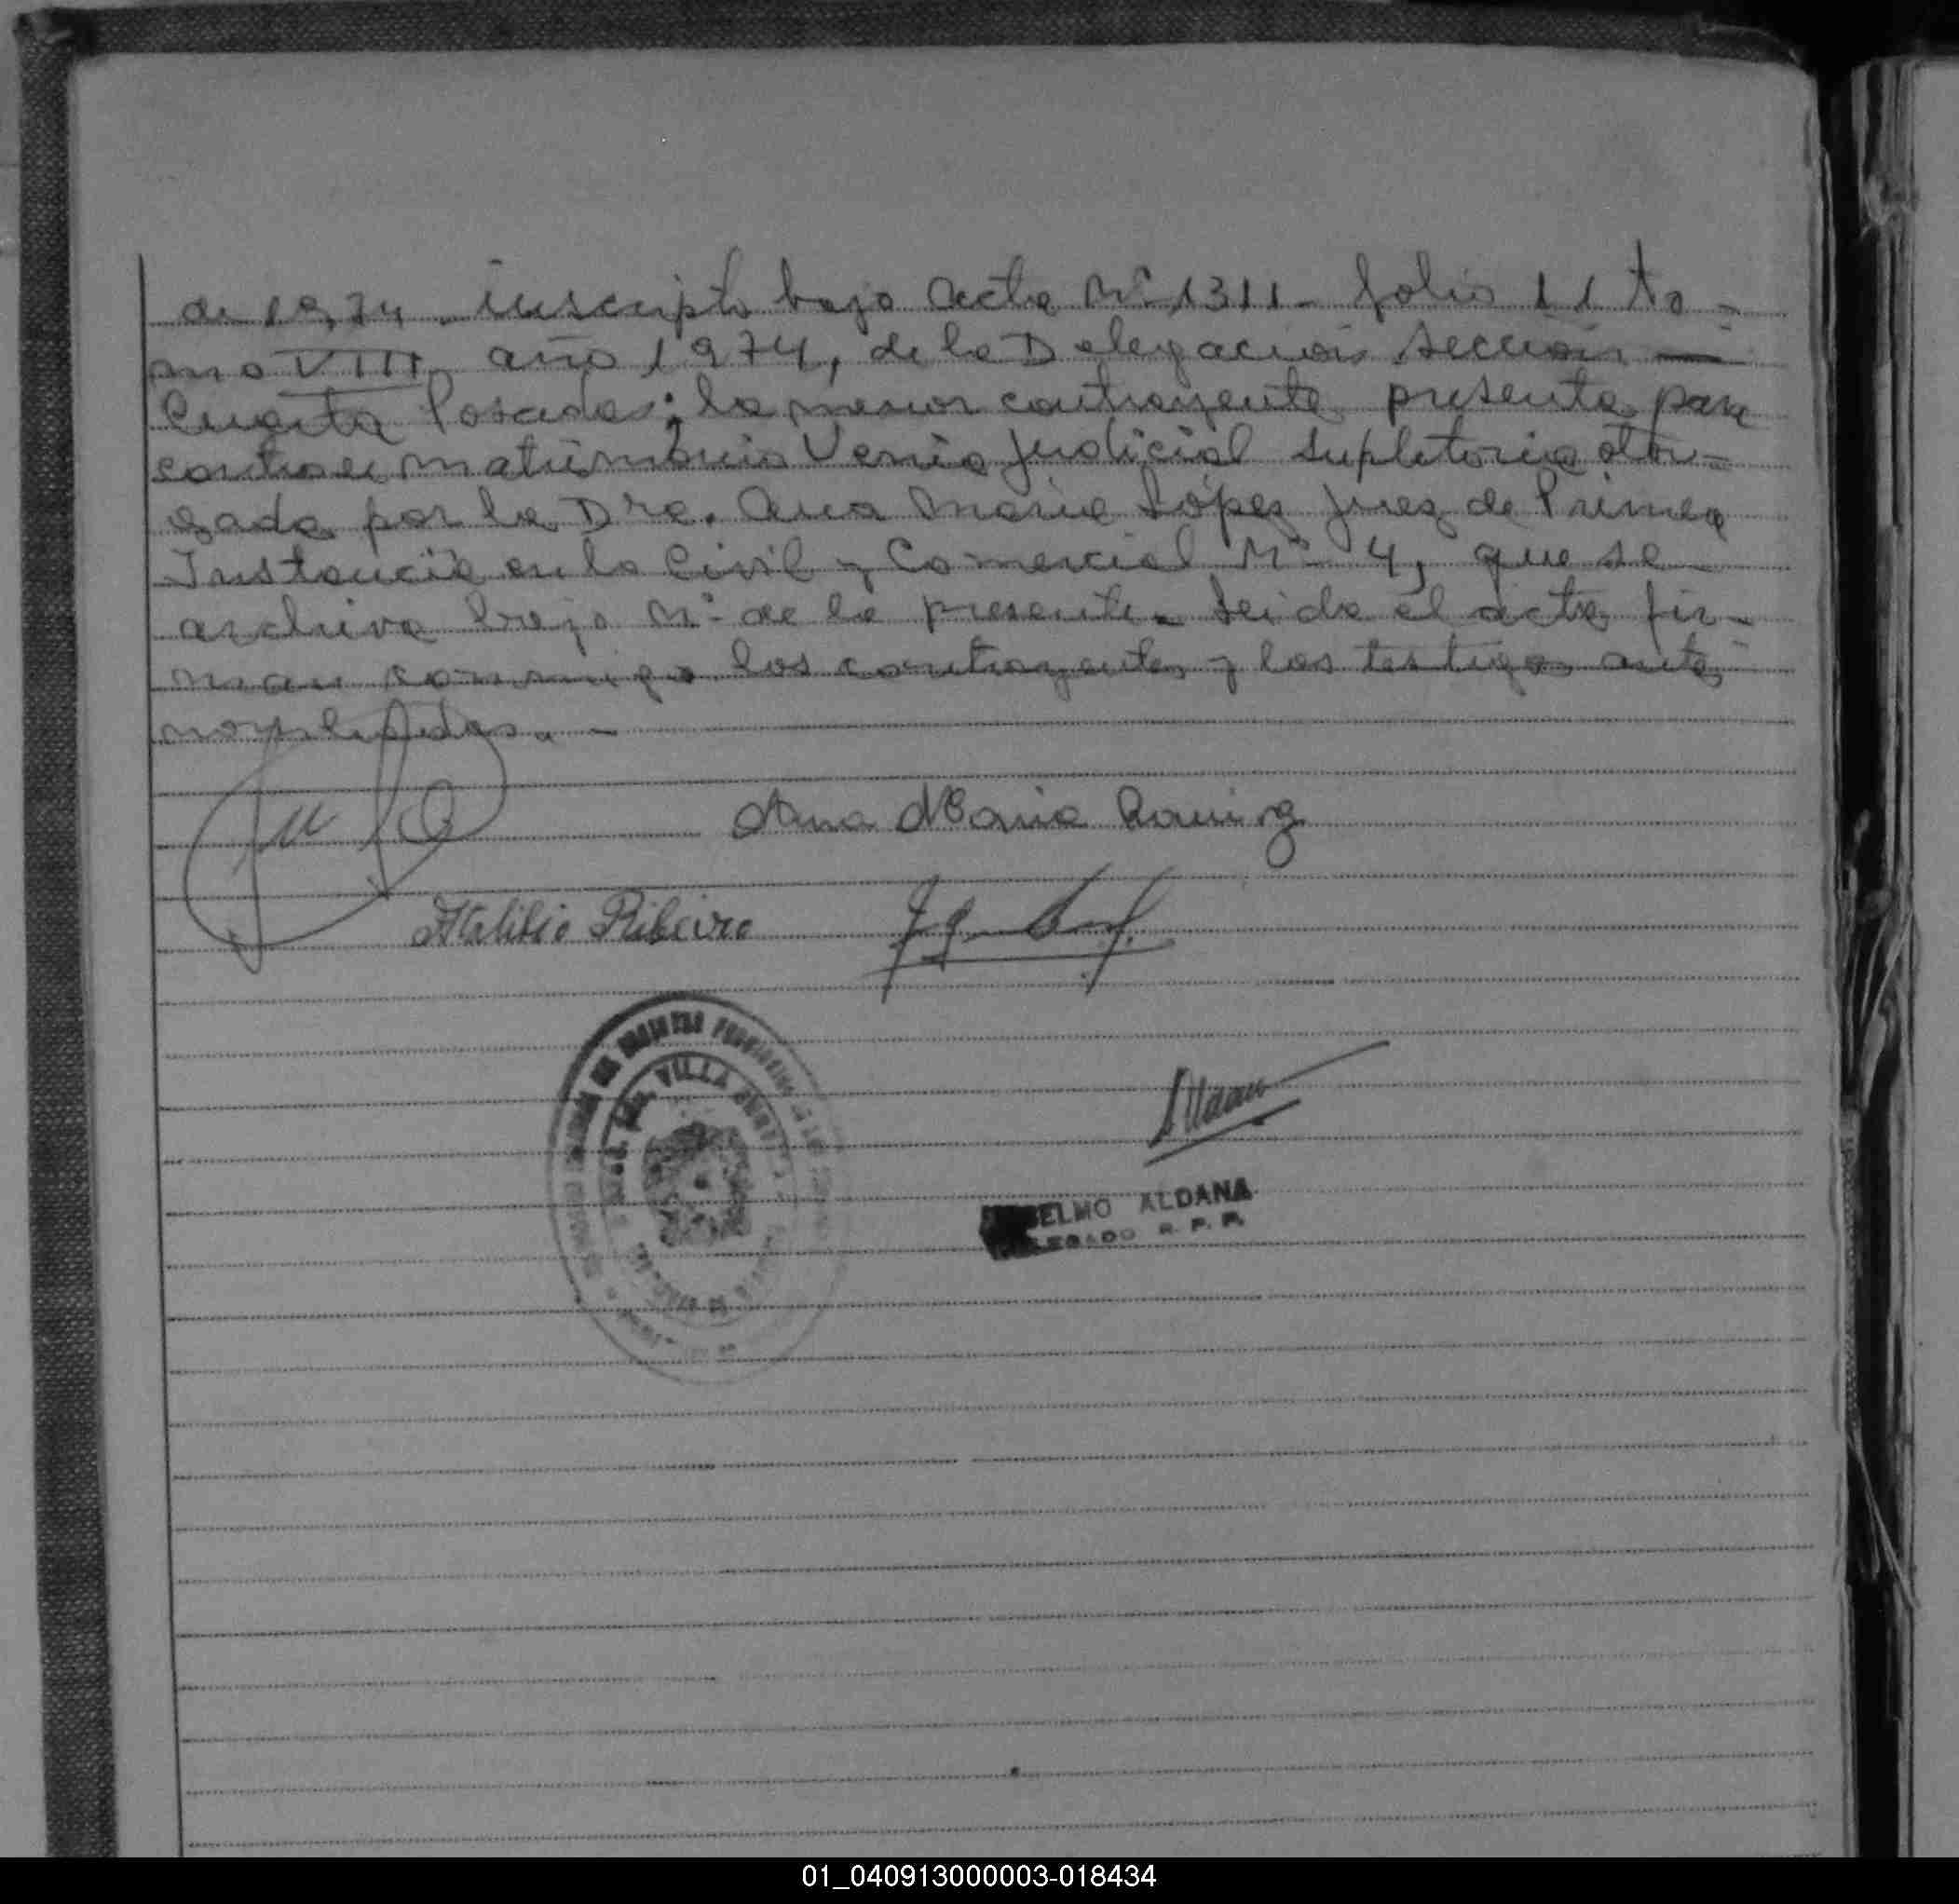 de 1974. inscripto bajo acta Nº 1311 - folio 11 to-
mo VIII año 1974, de la Delegación Sección —
Cuarta Posadas; la menor contrayente presenta para
contraer matrimonio Venia judicial supletoria otor-
gada por la Dra. Ana María López Juez de Primera
Instancia en lo Civil y Comercial Nº 4, que se
archiva bajo Nº de la presente. Leida el acta fir-
man conmigo los contrayentes y los testigos ante
nombrados. -
Ana Maria Ramirez
Ribeiro
VILLA
ELMO ALDANA
LEGADO R. P. P.
01_040913000003-018434